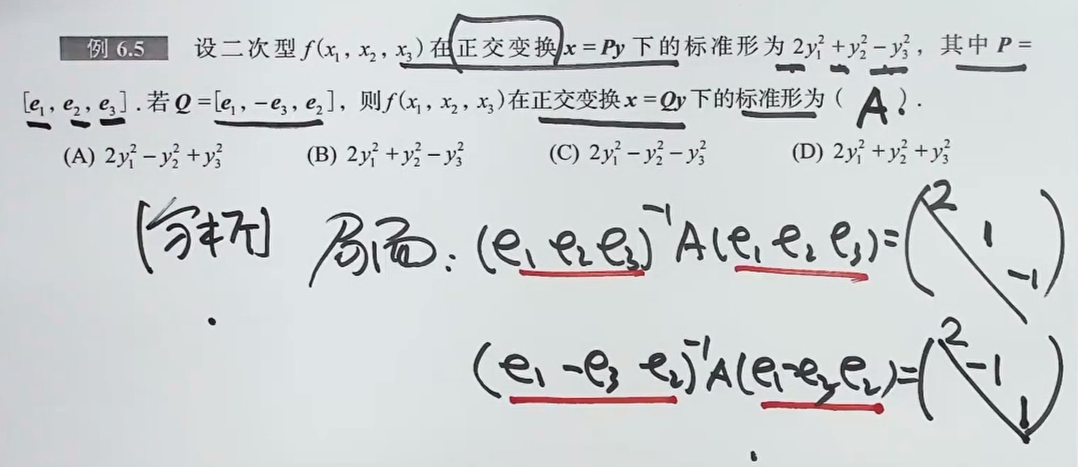 例 6.5 设二次型 f(x₁, x₂, x₃)在正交变换 x = Py 下的标准形为 2y₁²+y₂²−y₃², 其中 P =
[e₁, e₂, e₃]. 若 Q =[e₁, −e₃, e₂], 则 f(x₁, x₂, x₃)在正交变换 x = Qy 下的标准形为( A ).
(A) 2y₁²−y₂²+y₃² (B) 2y₁²+y₂²−y₃² (C) 2y₁²−y₂²−y₃² (D) 2y₁²+y₂²+y₃²
[分析] 局面: (e₁ e₂ e₃)⁻¹A(e₁ e₂ e₃)=(2 1 -1)
(e₁ -e₃ e₂)⁻¹A(e₁ -e₃ e₂)=(2 -1 1)